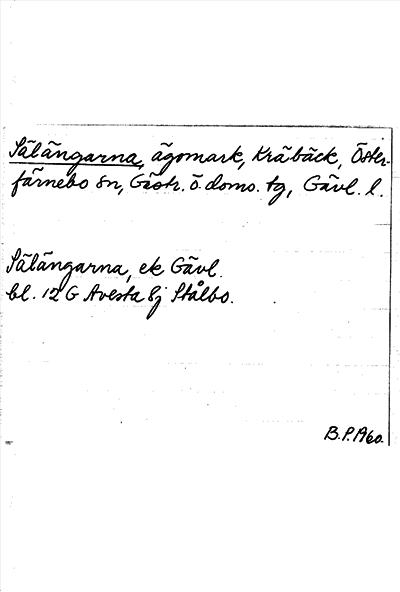 Sälängarna, ägomark, Kräbäck, Öster-
färnebo sn, Gästr. ö. doms. tg, Gävl. l.
Sälängarna, ek Gävl.
bl. 12 G Avesta 8j Stålbo.
B.P. 1960.